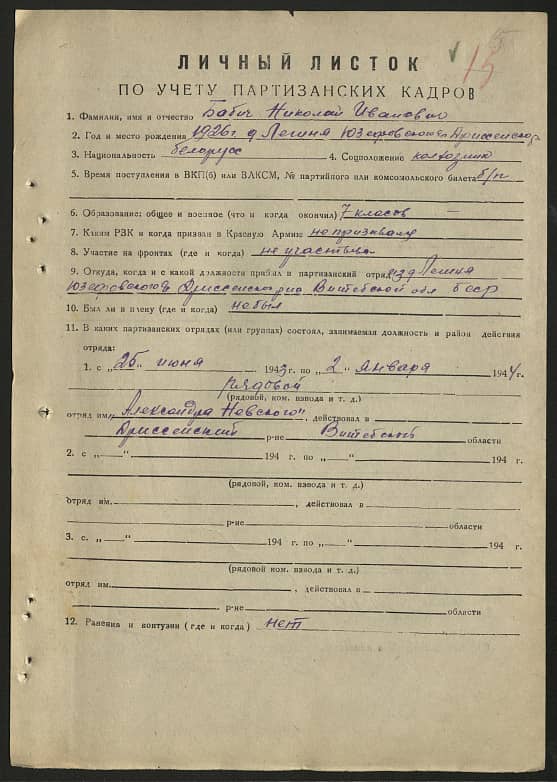 15
ЛИЧНЫЙ ЛИСТОК
ПО УЧЕТУ ПАРТИЗАНСКИХ КАДРОВ
1. Фамилия, имя и отчество Бабич Николай Иванович
2. Год и место рождения 1926г д Легня Юзефовского Дриссенског
3. Национальность белорусс 4. Соцположение колхозник
5. Время поступления в ВКП(б) или ВЛКСМ, № партийного или комсомольского билета б/п
6. Образование: общее и военное (что и когда окончил) 7 класов —
7. Каким РЗК и когда призван в Красную Армию не призывался
8. Участие на фронтах (где и когда) не участвовал
9. Откуда, когда и с какой должности прибыл в партизанский отряд из д Легня
Юзефовского Дриссенского Витебской обл бсср
10. Был ли в плену (где и когда) не был
11. В каких партизанских отрядах (или группах) состоял, занимаемая должность и район действия
отряда:
1. с „25" июня 1943 г. по „2" января 1944 г.
рядовой
(рядовой, ком. взвода и т. д.)
отряд им. „Александра Невского", действовал в
Дриссенский р-не Витебской области
2. с „—" 194 г. по „—" 194 г.
(рядовой, ком. взвода и т. д.)
отряд им. , действовал в
р-не области
3. с. „—" 194 г. по „—" 194 г.
(рядовой, ком. взвода и т. д.)
отряд им. , действовал в
р-не области
12. Ранения и контузии (где и когда) нет